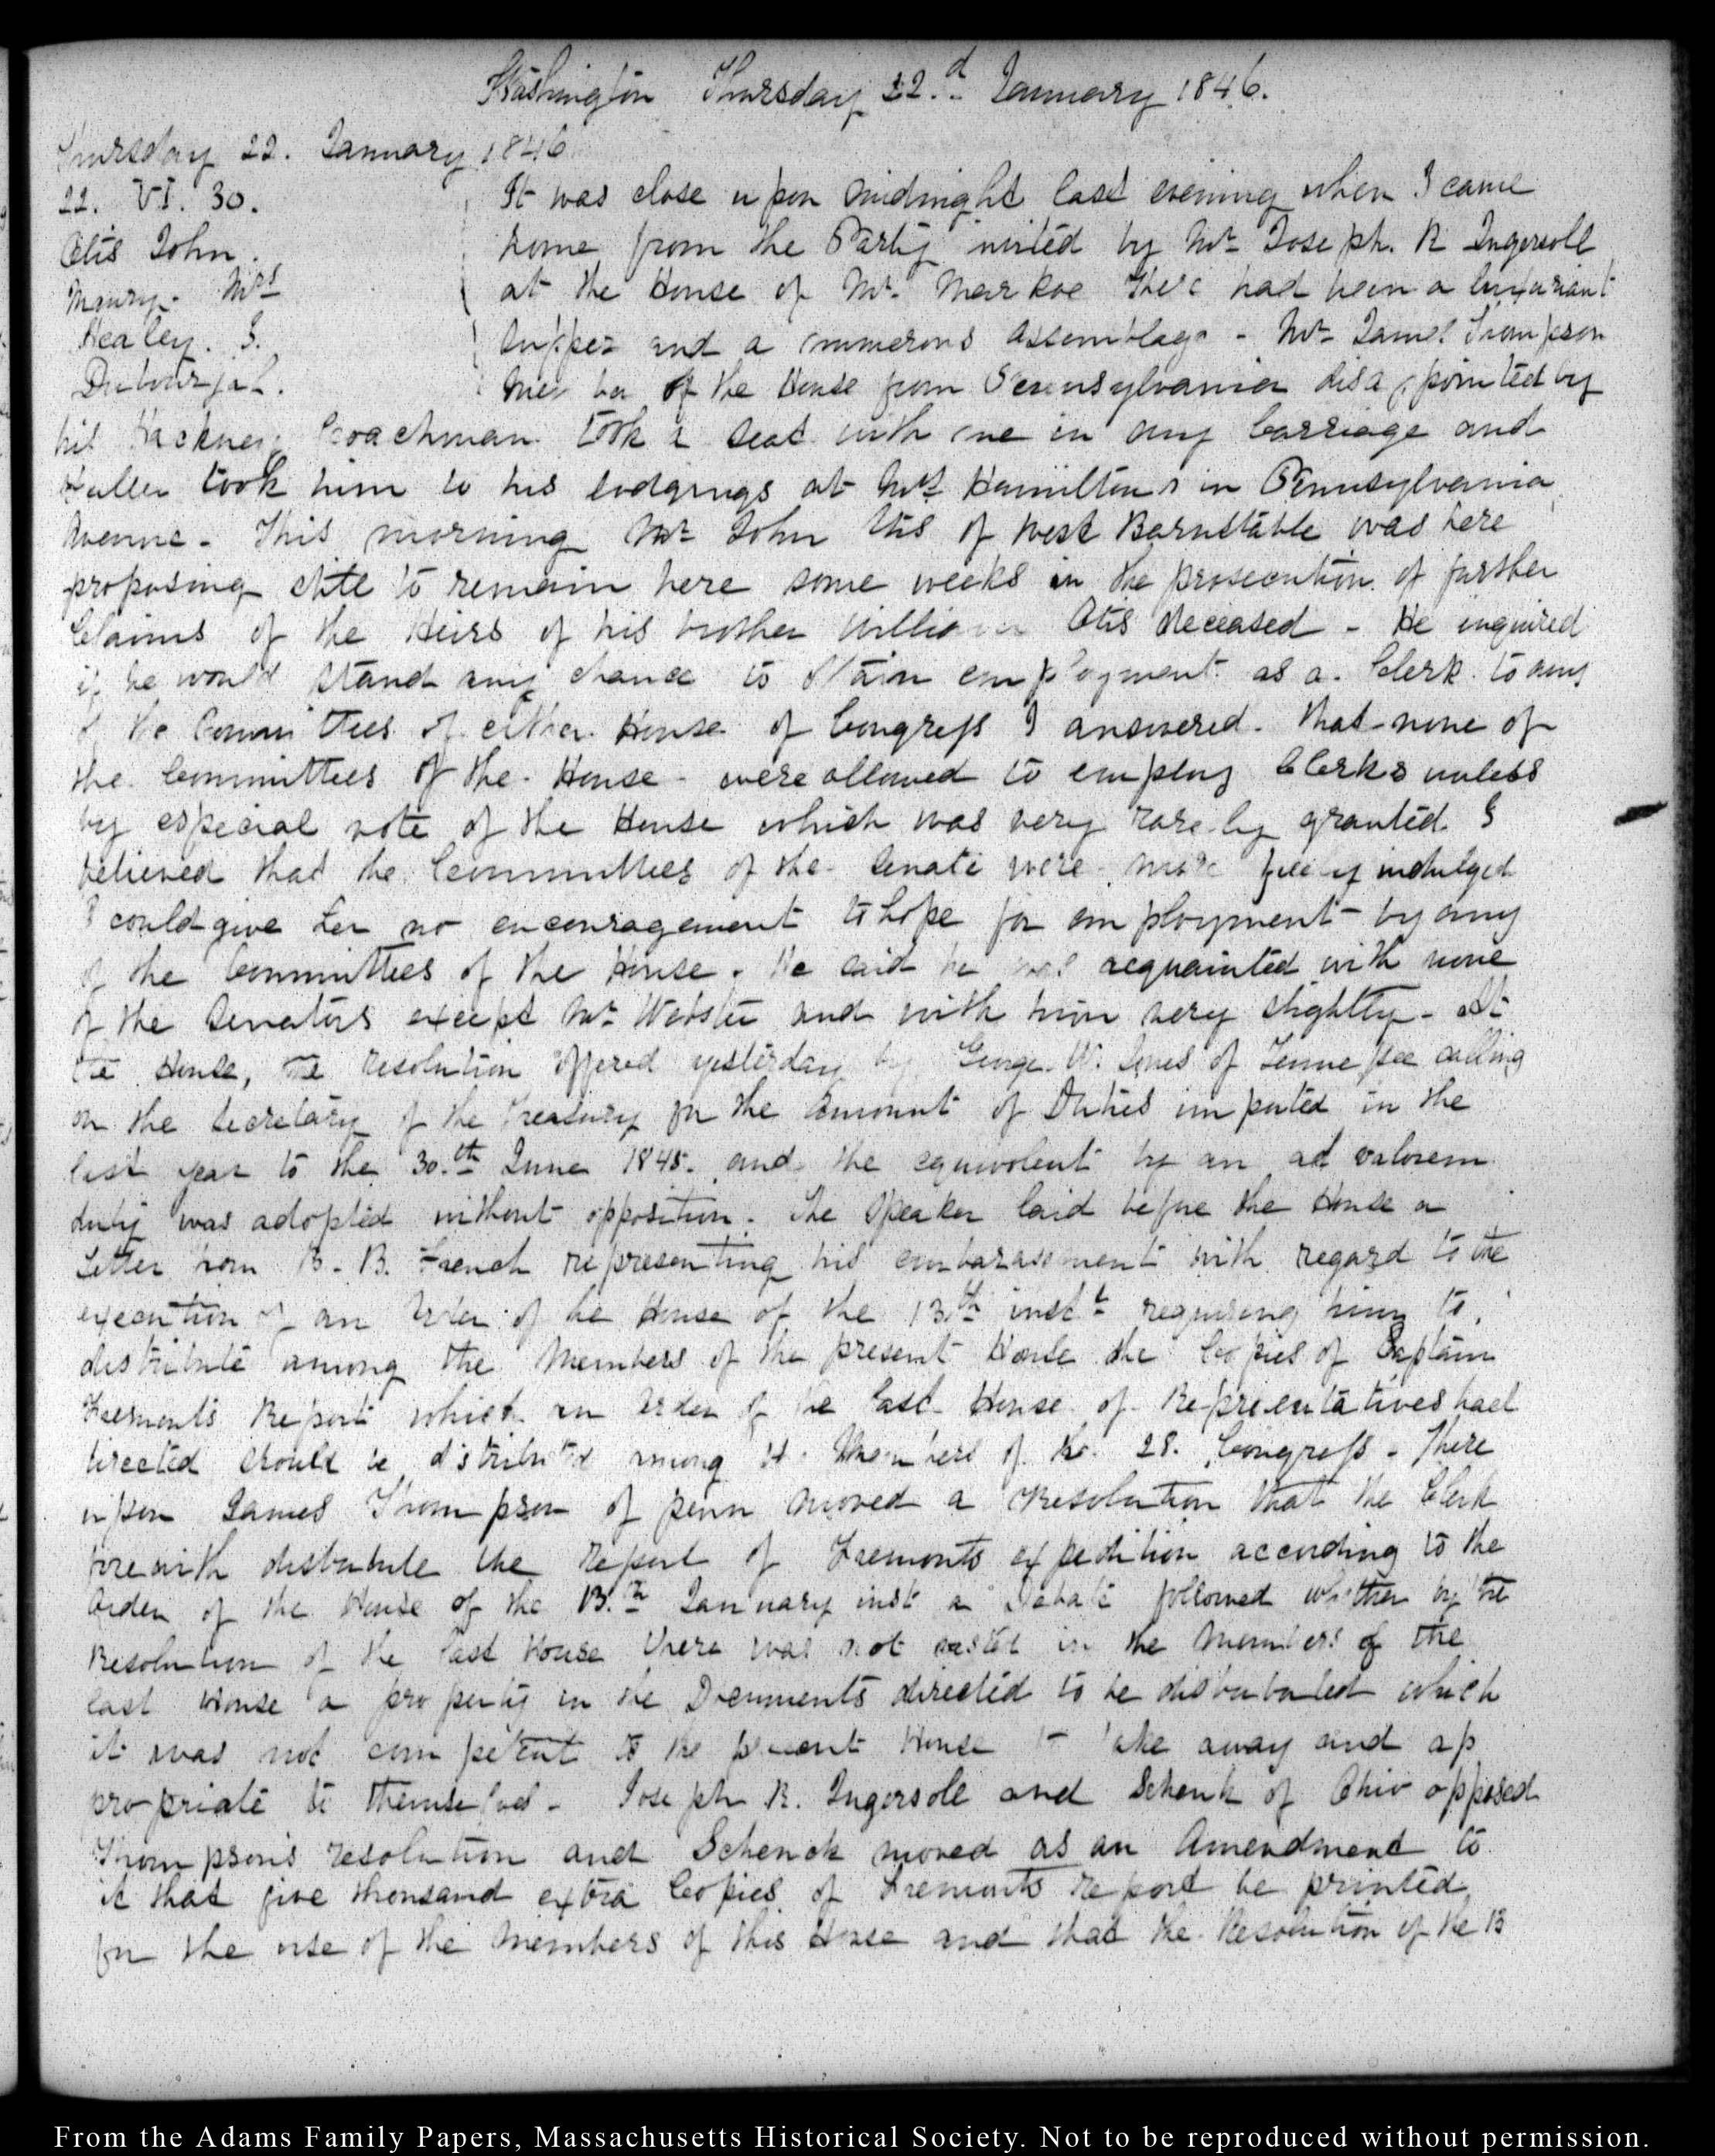 Washington Thursday 22.d January 1846.
Thursday 22. January 1846
22. VI. 30.
Otis John.
Maury. Mrs
Healey. G.
It was close upon midnight last evening when I came
home from the Party invited by Mr Joseph. R Ingersoll
at the House of Mr Markoe there had been a luxuriant
supper and a numerous assemblage - Mr James Thompson
Member of the House from Pennsylvania disappointed by
his Hackney Coachman took a seat with me in my Carriage and
took him to his lodgings at Mrs Hamilton's in Pennsylvania
Avenue - This morning Mr John Otis of West Barnstable was here
proposing to remain here some weeks in the prosecution of further
Claims of the Heirs of his brother William Otis deceased - He inquired
if he would stand any chance to obtain employment as a Clerk to any
of the Committees of either House of Congress I answered that none of
the Committees of the House were allowed to employ Clerks unless
by especial vote of the House which was very rarely granted I
believed that the Committees of the Senate were more freely indulged
I could give no encouragement to hope for employment by any
of the Committees of the House. He said he was acquainted with none
of the Senators except Mr Webster and with him very slightly - At
the House, the resolution offered yesterday by George. W. Jones of Tennessee calling
on the Secretary of the Treasury for the amount of Duties imported in the
last year to the 30.th June 1845. and the equivolent by an ad valorem
duty was adopted without opposition. The Speaker laid before the House a
Letter from B. B. French representing his embarassment with regard to the
execution of an Order of the House of the 13th inst.t requiring him to
distribute among the Members of the present House the Copies of Captain
Fremonts Report which an order of the last House of Representatives had
directed should be distributed among the Members of the 28. Congress - There
upon James Thompson of penn moved a resolution that the Clerk
forewith distribute the report of Fremonts expedition according to the
Order of the House of the 13.th January inst a Debate followed whether by the
Resolution of the last House there was not vested in the Members of the
last House a property in the Documents directed to be distributed which
it was not competent to the present House to take away and ap
propriate to themselves - Joseph R. Ingersoll and Schenk of Ohio opposed
Thompson's resolution and Schenck moved as an Amendment to
it that five thousand extra Copies of Fremonts report be printed
for the use of the Members of this House and that the Resolution of the 13
From the Adams Family Papers, Massachusetts Historical Society. Not to be reproduced without permission.